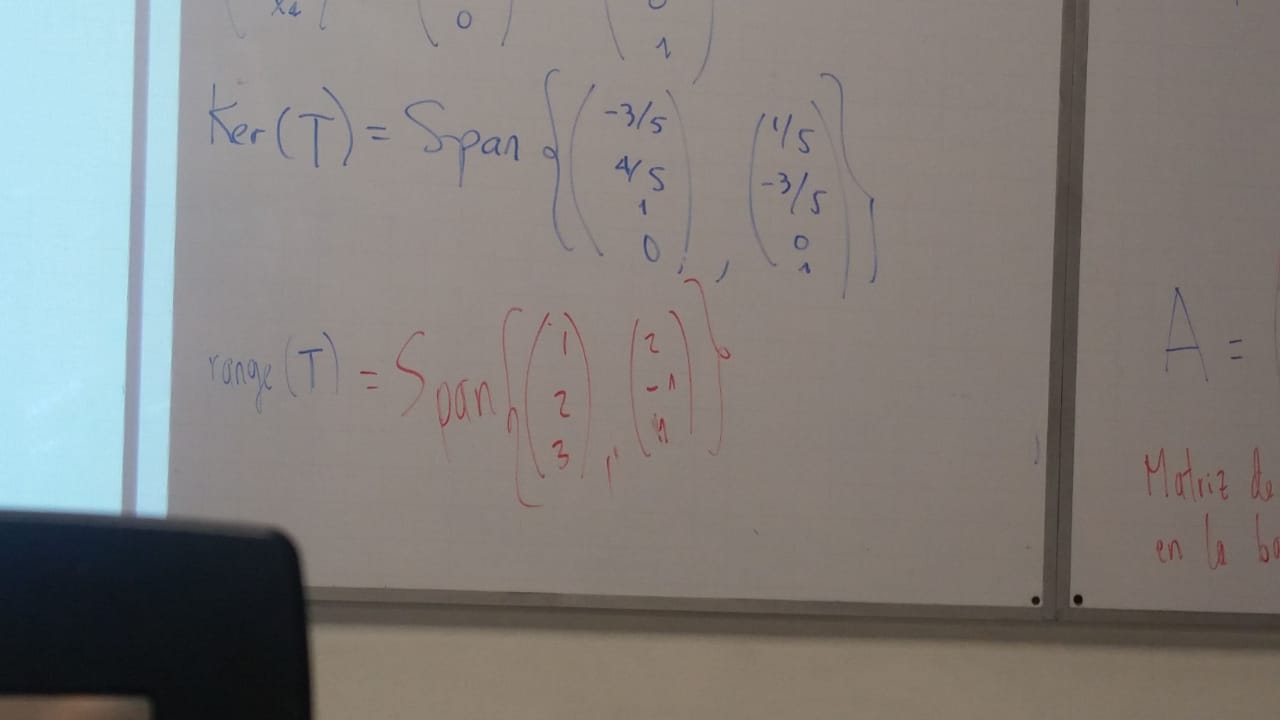 x₄ 0 0
1
Ker(T) = Span { (-3/5, 4/5, 1, 0), (1/5, -3/5, 0, 1) }
range(T) = Span { (1, 2, 3), (2, -1, 1) }
A = (
Matriz de
en la ba